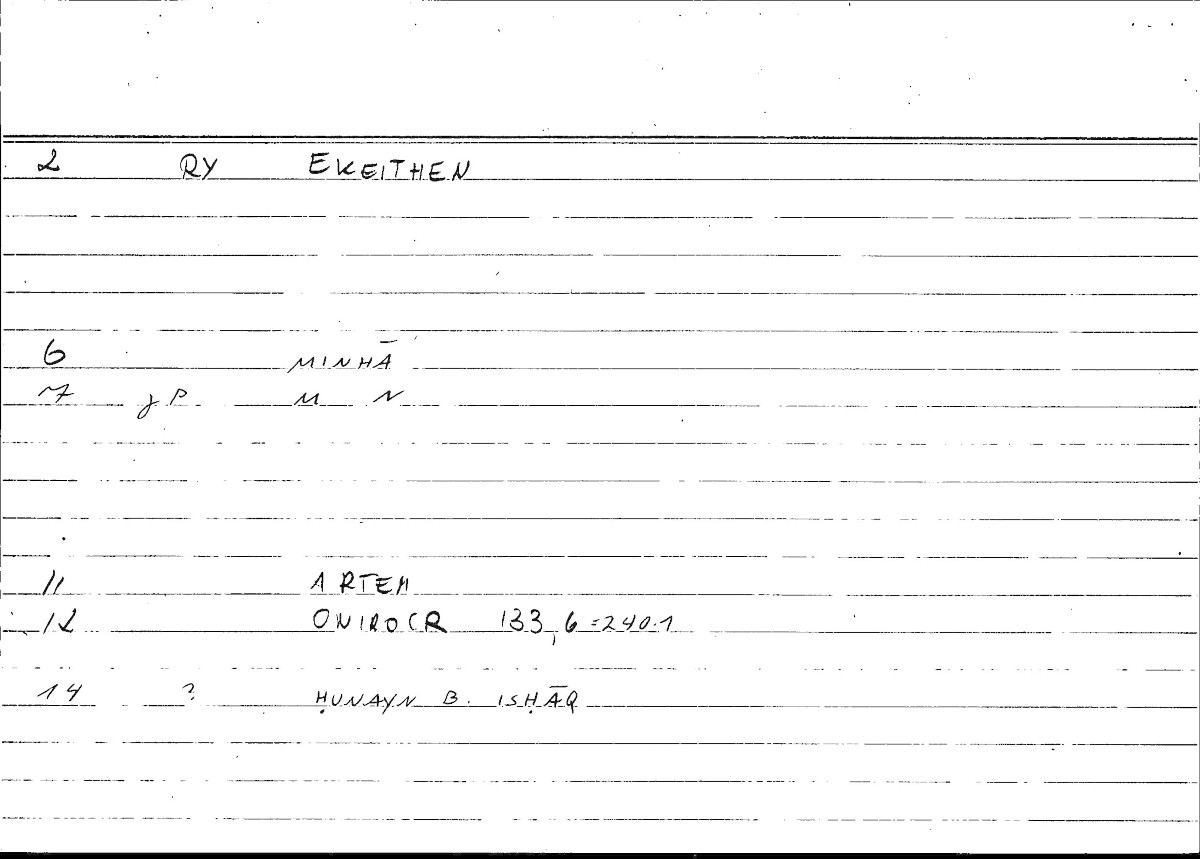 2 RY EKEITHEN
6 MINHĀ
7 gP M N
11 ARTEM
12 ONIROCR 133,6=240.1
14 ? ḤUNAYN B. ISḤĀQ